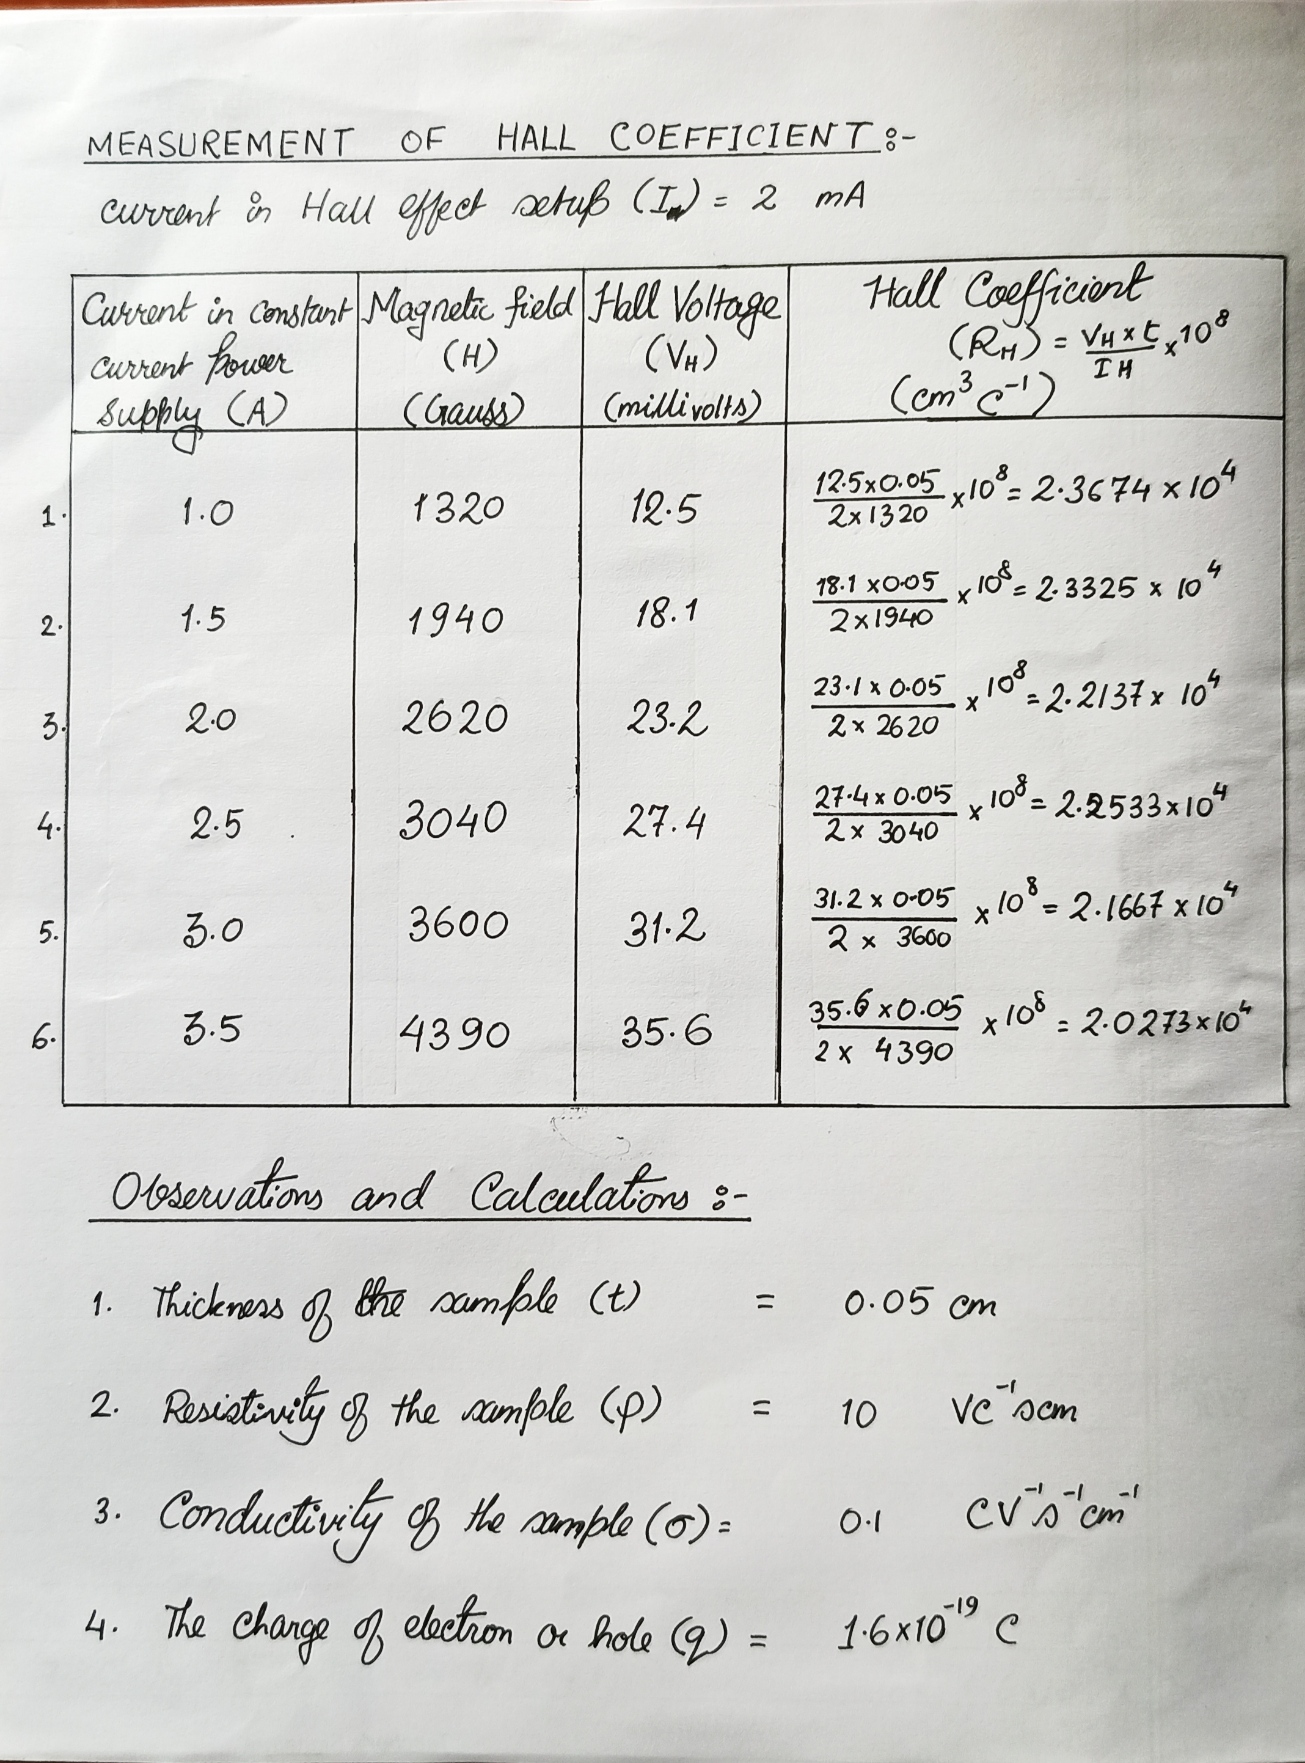 MEASUREMENT OF HALL COEFFICIENT :-
Current in Hall effect setup (I) = 2 mA
Current in constant current power supply (A) | Magnetic field (H) (Gauss) | Hall Voltage (VH) (millivolts) | Hall Coefficient (RH) = VH × t / IH × 10⁸ (cm³ C⁻¹)
1. 1.0 1320 12.5 12.5×0.05 / 2×1320 × 10⁸ = 2.3674 × 10⁴
2. 1.5 1940 18.1 18.1×0.05 / 2×1940 × 10⁸ = 2.3325 × 10⁴
3. 2.0 2620 23.2 23.1×0.05 / 2×2620 × 10⁸ = 2.2137 × 10⁴
4. 2.5 3040 27.4 27.4×0.05 / 2×3040 × 10⁸ = 2.2533×10⁴
5. 3.0 3600 31.2 31.2×0.05 / 2×3600 × 10⁸ = 2.1667×10⁴
6. 3.5 4390 35.6 35.6×0.05 / 2×4390 × 10⁸ = 2.0273×10⁴
Observations and Calculations :-
1. Thickness of the sample (t) = 0.05 cm
2. Resistivity of the sample (ρ) = 10 VC⁻¹scm
3. Conductivity of the sample (σ) = 0.1 CV⁻¹s⁻¹cm⁻¹
4. The charge of electron or hole (q) = 1.6×10⁻¹⁹ C